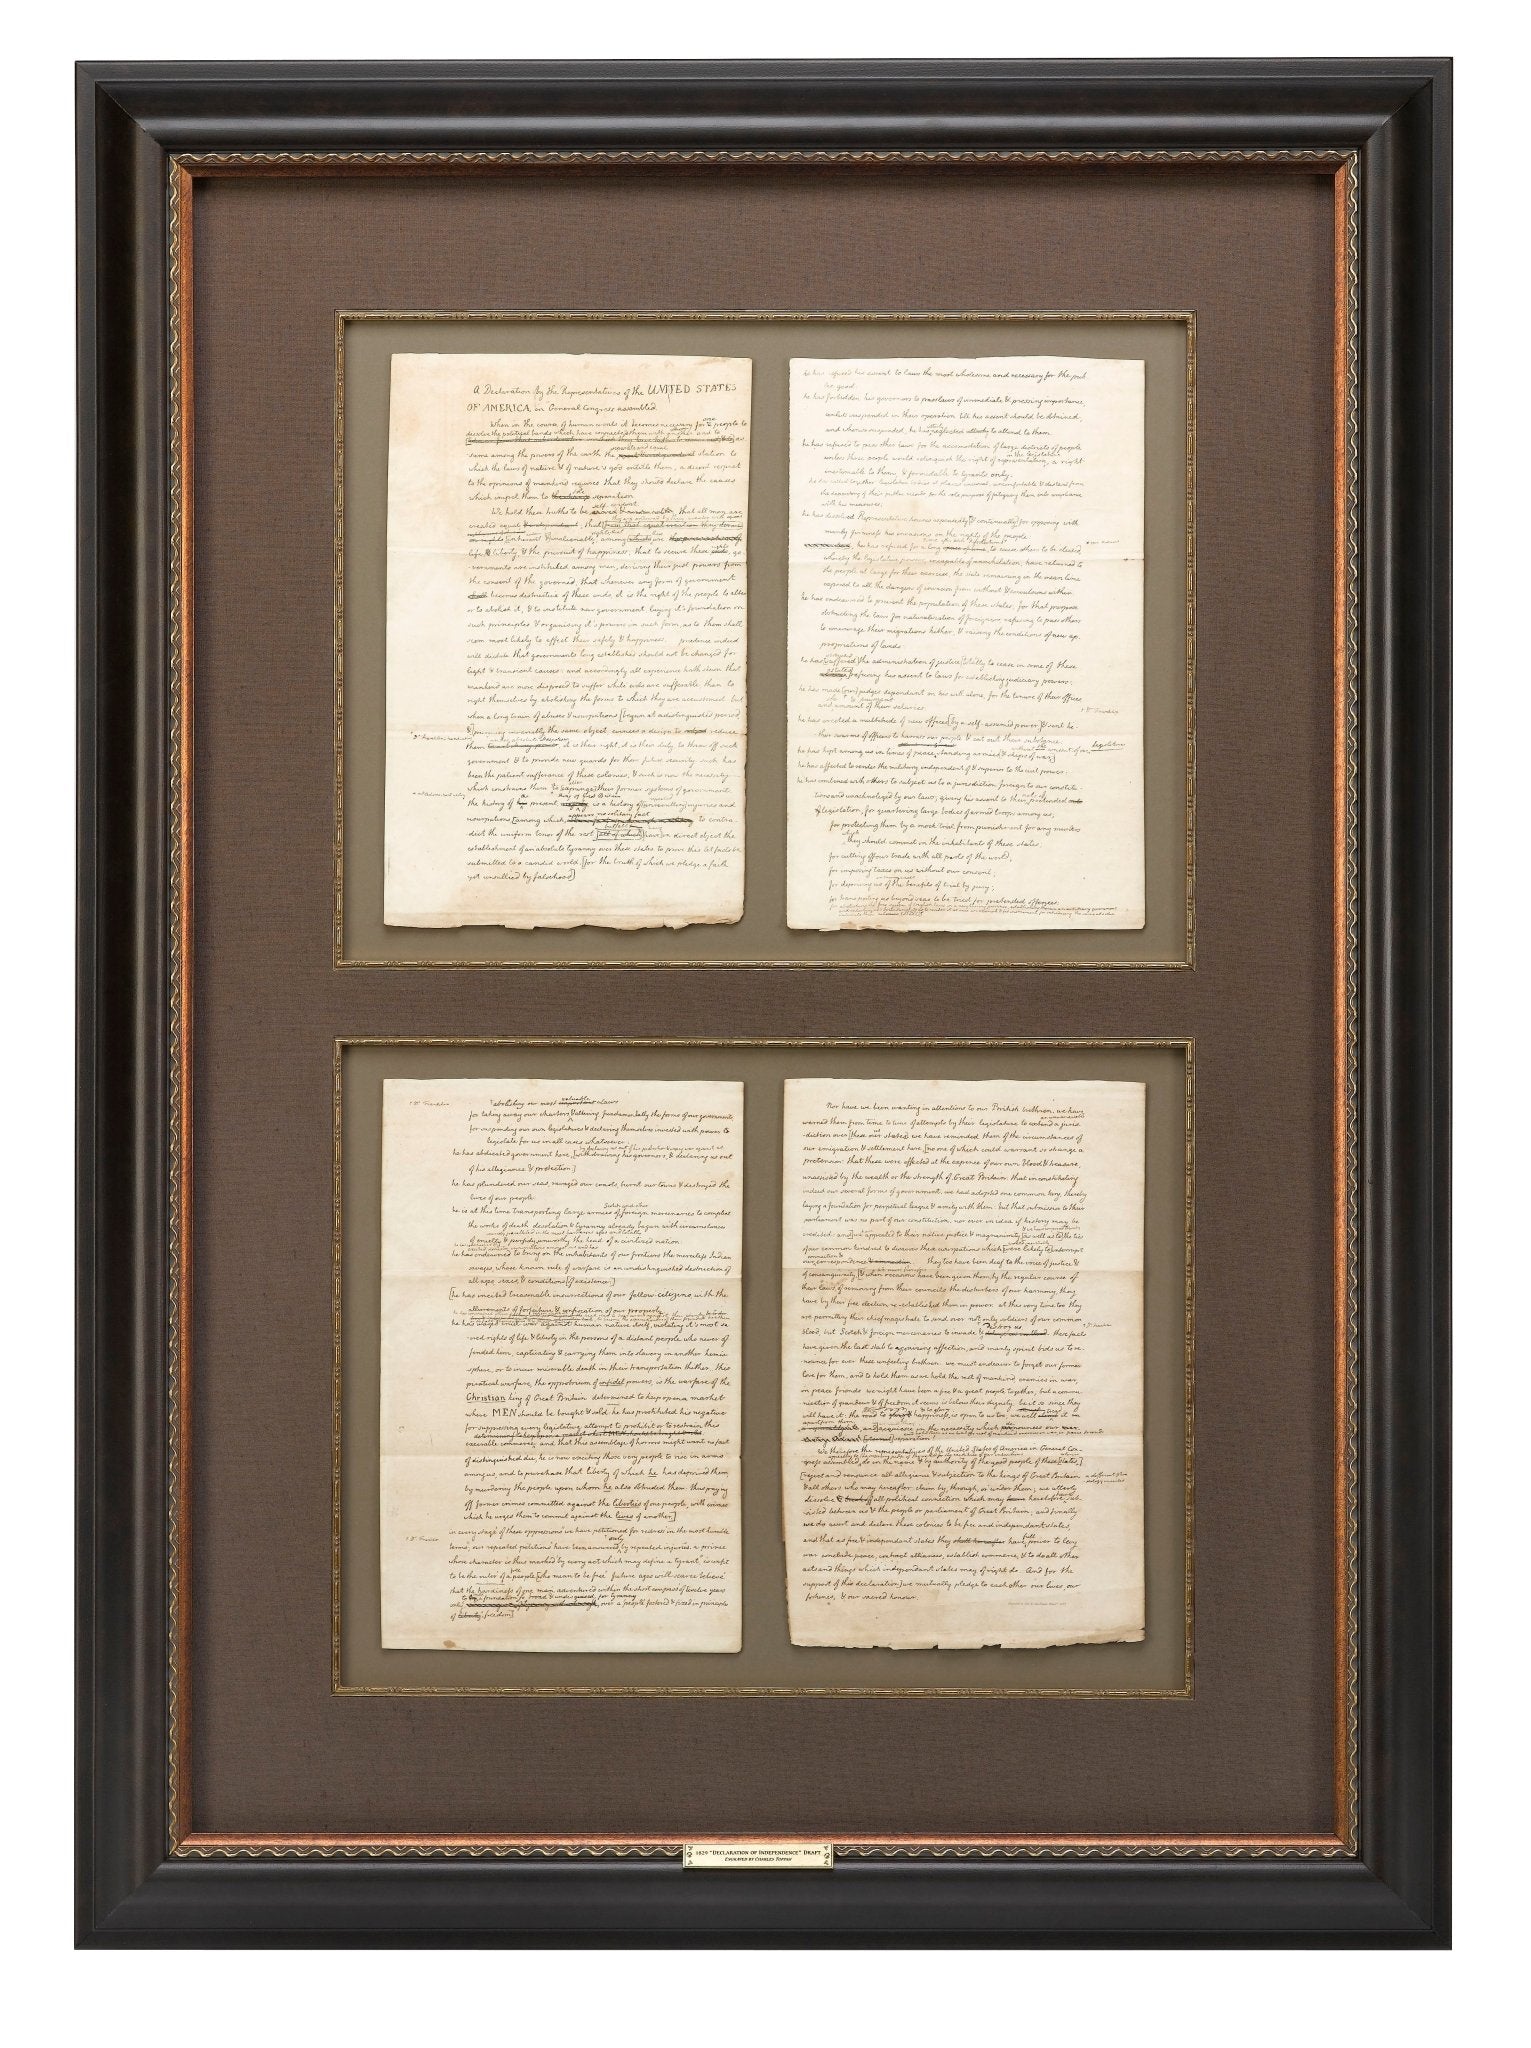 A Declaration by the Representatives of the UNITED STATES
OF AMERICA, in General Congress assembled.
When in the course of human events it becomes necessary for one people to
dissolve the political bands which have connected them with another, and to
-sume among the powers of the earth the separate and equal station to
which the laws of nature & of nature's god entitle them, a decent respect
to the opinions of mankind requires that they should declare the causes
which impel them to the separation.
We hold these truths to be self-evident, that all men are
created equal
life, & liberty, & the pursuit of happiness; that to secure these rights, go-
-vernments are instituted among men, deriving their just powers from
the consent of the governed; that whenever any form of government
becomes destructive of these ends, it is the right of the people to alter
or to abolish it, & to institute new government, laying it's foundation on
such principles & organising it's powers in such form, as to them shall
seem most likely to effect their safety & happiness. prudence indeed
will dictate that governments long established should not be changed for
light & transient causes: and accordingly all experience hath shewn that
mankind are more disposed to suffer while evils are sufferable, than to
right themselves by abolishing the forms to which they are accustomed. but
when a long train of abuses & usurpations [begun at a distinguished period,
&] pursuing invariably the same object, evinces a design to reduce
them it is their right, it is their duty, to throw off such
government & to provide new guards for their future security. such has
been the patient sufferance of these colonies, & such is now the necessity
which constrains them to [expunge] their former systems of government.
the history of present is a history of injuries and
usurpations [among which, appears no solitary fact to contra-
-dict the uniform tenor of the rest in direct object the
establishment of an absolute tyranny over these states. to prove this let facts be
submitted to a candid world, [for the truth of which we pledge a faith
yet unsullied by falsehood]
he has refused his assent to laws the most wholesome and necessary for the pub-
-lic good:
he has forbidden his governors to pass laws of immediate & pressing importance,
unless suspended in their operation till his assent should be obtained;
and when so suspended, he has neglected utterly to attend to them.
he has refused to pass other laws for the accomodation of large districts of people
unless those people would relinquish the right of representation, a right
inestimable to them, & formidable to tyrants only:
he has called together legislative bodies at places unusual, uncomfortable & distant from
the depository of their public records, for the sole purpose of fatiguing them into compliance
with his measures;
he has dissolved Representative houses repeatedly [& continually] for opposing with
manly firmness his invasions on the rights of the people:
he has refused for a long time to cause others to be elected,
whereby the legislative powers, incapable of annihilation, have returned to
the people at large for their exercise, the state remaining in the mean time
exposed to all the dangers of invasion from without & convulsions within:
he has endeavored to prevent the population of these states; for that purpose
obstructing the laws for naturalization of foreigners; refusing to pass others
to encourage their migrations hither; & raising the conditions of new ap-
-propriations of lands:
he has suffered the administration of justice [totally to cease in some of these
states] refusing his assent to laws for establishing judiciary powers:
he has made [our] judges dependant on his will alone, for the tenure of their offices,
and amount of their salaries:
he has erected a multitude of new offices [by a self-assumed power] & sent hi-
-ther swarms of officers to harrass our people & eat out their substance:
he has kept among us in times of peace standing armies [& ships of war]
he has affected to render the military, independent of & superior to the civil power:
he has combined with others to subject us to a jurisdiction foreign to our constitu-
-tions and unacknoleged by our laws; giving his assent to their pretended acts
of legislation, for quartering large bodies of armed troops among us;
for protecting them by a mock-trial from punishment for any murders
they should commit on the inhabitants of these states;
for cutting off our trade with all parts of the world;
for imposing taxes on us without our consent;
for depriving us of the benefits of trial by jury;
for transporting us beyond seas to be tried for pretended offences:
abolishing our most valuable laws
for taking away our charters & altering fundamentally the forms of our governments
for suspending our own legislatures & declaring themselves invested with power to
legislate for us in all cases whatsoever:
he has abdicated government here, [withdrawing his governors, & declaring us out
of his allegiance & protection:]
he has plundered our seas, ravaged our coasts, burnt our towns & destroyed the
lives of our people:
he is at this time transporting large armies of foreign mercenaries to compleat
the works of death desolation & tyranny already begun with circumstances
of cruelty & perfidy unworthy the head of a civilized nation:
he has endeavored to bring on the inhabitants of our frontiers the merciless Indian
savages, whose known rule of warfare is an undistinguished destruction of
all ages, sexes, & conditions [of existence:]
[he has incited treasonable insurrections of our fellow-citizens, with the
allurements of forfeiture & confiscation of our property:
he has waged cruel war against human nature itself, violating it's most sa-
-cred rights of life & liberty in the persons of a distant people who never of-
fended him, captivating & carrying them into slavery in another hemis-
-phere, or to incur miserable death in their transportation thither. this
piratical warfare, the opprobrium of infidel powers, is the warfare of the
Christian king of Great Britain. determined to keep open a market
where MEN should be bought & sold, he has prostituted his negative
for suppressing every legislative attempt to prohibit or to restrain this
execrable commerce: and that this assemblage of horrors might want no fact
of distinguished die, he is now exciting those very people to rise in arms
among us, and to purchase that liberty of which he has deprived them,
by murdering the people upon whom he also obtruded them; thus paying
off former crimes committed against the liberties of one people, with crimes
which he urges them to commit against the lives of another.]
in every stage of these oppressions we have petitioned for redress in the most humble
terms; our repeated petitions have been answered by repeated injuries. a prince
whose character is thus marked by every act which may define a tyrant, is unfit
to be the ruler of a people [who mean to be free. future ages will scarce believe
that the hardiness of one man, adventured within the short compass of twelve years
only over a people fostered & fixed in principles
of freedom]
Nor have we been wanting in attentions to our British brethren. we have
warned them from time to time of attempts by their legislature to extend a juris-
-diction over [these our states]. we have reminded them of the circumstances of
our emigration & settlement here [no one of which could warrant so strange a
pretension: that these were effected at the expence of our own blood & treasure,
unassisted by the wealth or the strength of Great Britain: that in constituting
indeed our several forms of government, we had adopted one common king, thereby
laying a foundation for perpetual league & amity with them: but that submission to their
parliament was no part of our constitution, nor ever in idea if history may be
credited: and] we appealed to their native justice & magnanimity [as well as to] the ties
of our common kindred to disavow these usurpations which [were likely to] interrupt
our correspondence & they too have been deaf to the voice of justice &
of consanguinity, [& when occasions have been given them, by the regular course of
their laws, of removing from their councils the disturbers of our harmony, they
have by their free election re-established them in power. at this very time too they
are permitting their chief magistrate to send over not only soldiers of our common
blood, but Scotch & foreign mercenaries to invade & destroy us. these facts
have given the last stab to agonizing affection, and manly spirit bids us to re-
-nounce for ever these unfeeling brethren. we must endeavor to forget our former
love for them, and to hold them as we hold the rest of mankind enemies in war,
in peace friends. we might have been a free & a great people together; but a commu-
-nication of grandeur & of freedom it seems is below their dignity. be it so, since they
will have it: the road to happiness is open to us too; we will it in
We therefore the representatives of the United States of America in General Con-
-gress assembled, do in the name & by authority of the good people of these [states,]
[reject and renounce all allegiance & subjection to the kings of Great Britain
& all others who may hereafter claim by, through, or under them; we utterly
dissolve all political connection which may have sub-
-sisted between us & the people or parliament of Great Britain; and finally
we do assert and declare these colonies to be free and independant states,
and that as free & independant states they have full power to levy
war conclude peace, contract alliances, establish commerce, & to do all other
acts and things which independant states may of right do. And for the
support of this declaration] we mutually pledge to each other our lives, our
fortunes, & our sacred honour.
1829 "DECLARATION OF INDEPENDENCE" DRAFT
ENGRAVED BY CHARLES TOPPAN